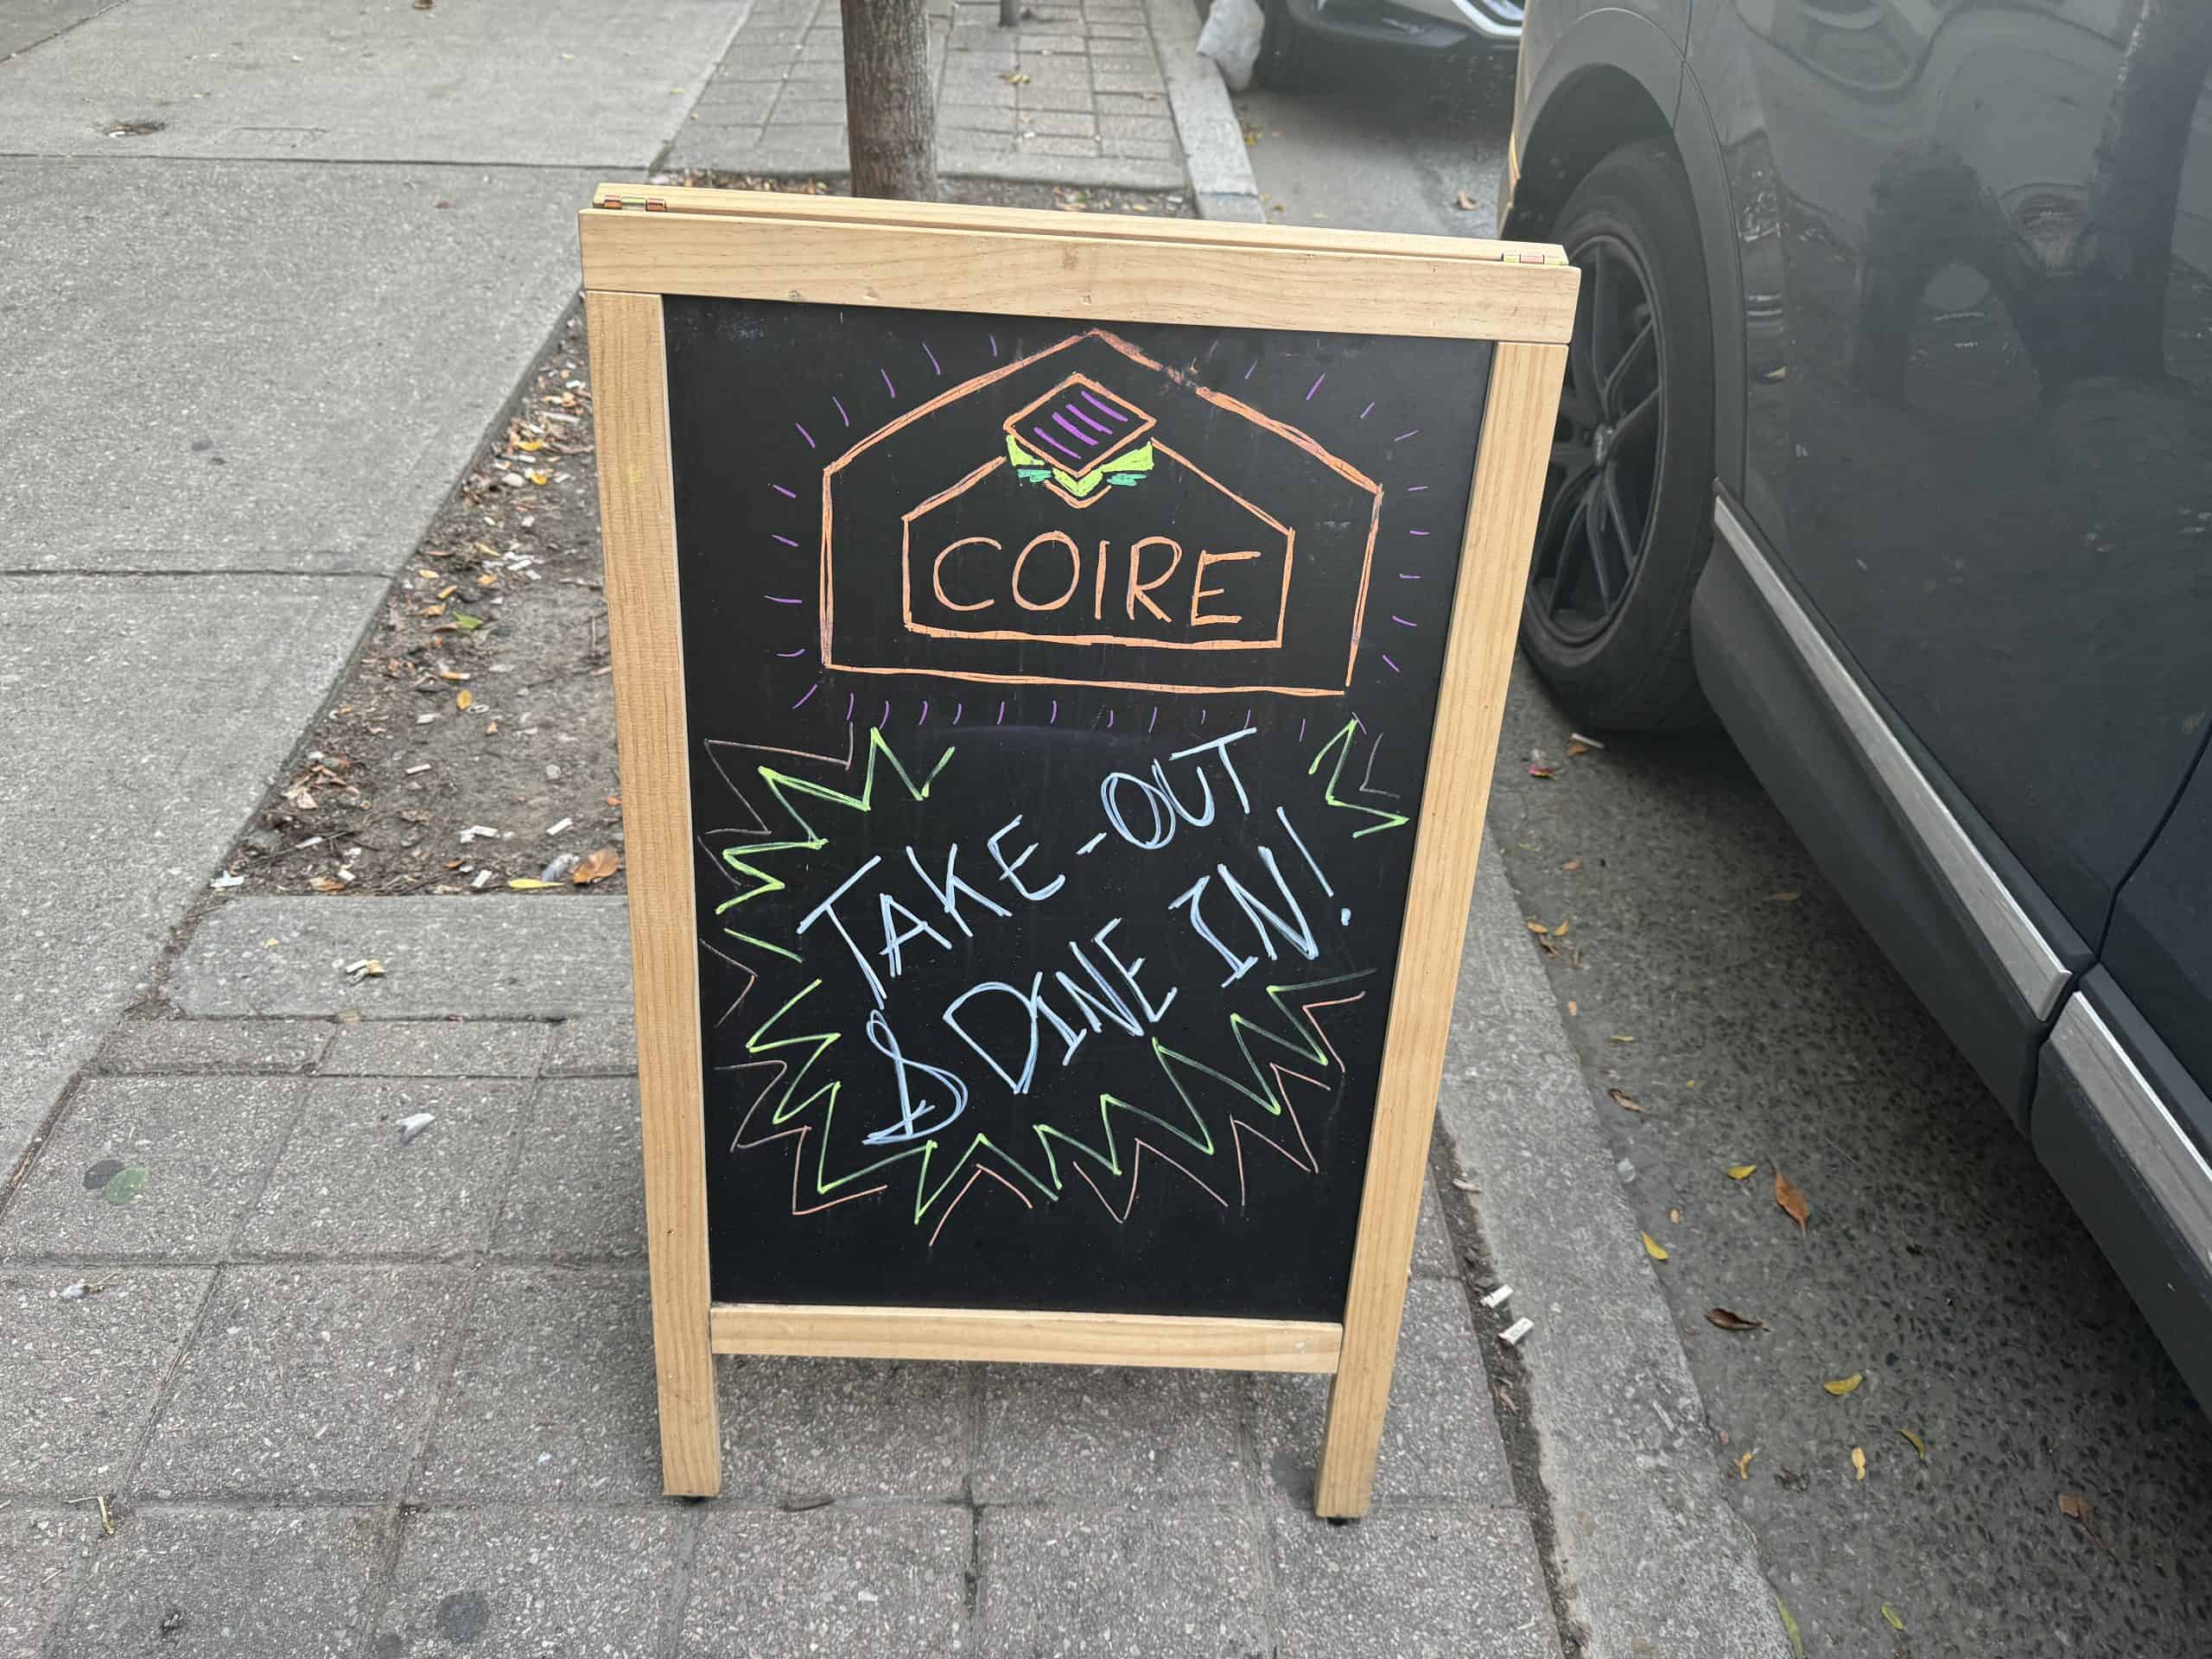 COIRE
TAKE-OUT
& DINE IN!